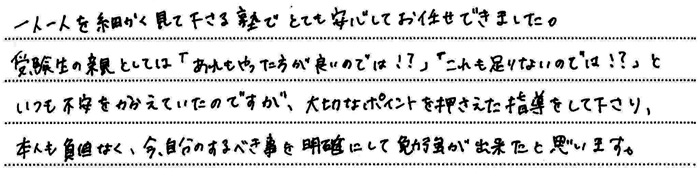 一人一人を細かく見て下さる塾でとても安心してお任せできました。
受験生の親としては「あれもやった方が良いのでは!?」「これも足りないのでは!?」と
いつも不安をかかえていたのですが、大切なポイントを押さえた指導をして下さり、
本人も負担なく、今、自分のするべき事を明確にして勉強が出来たと思います。